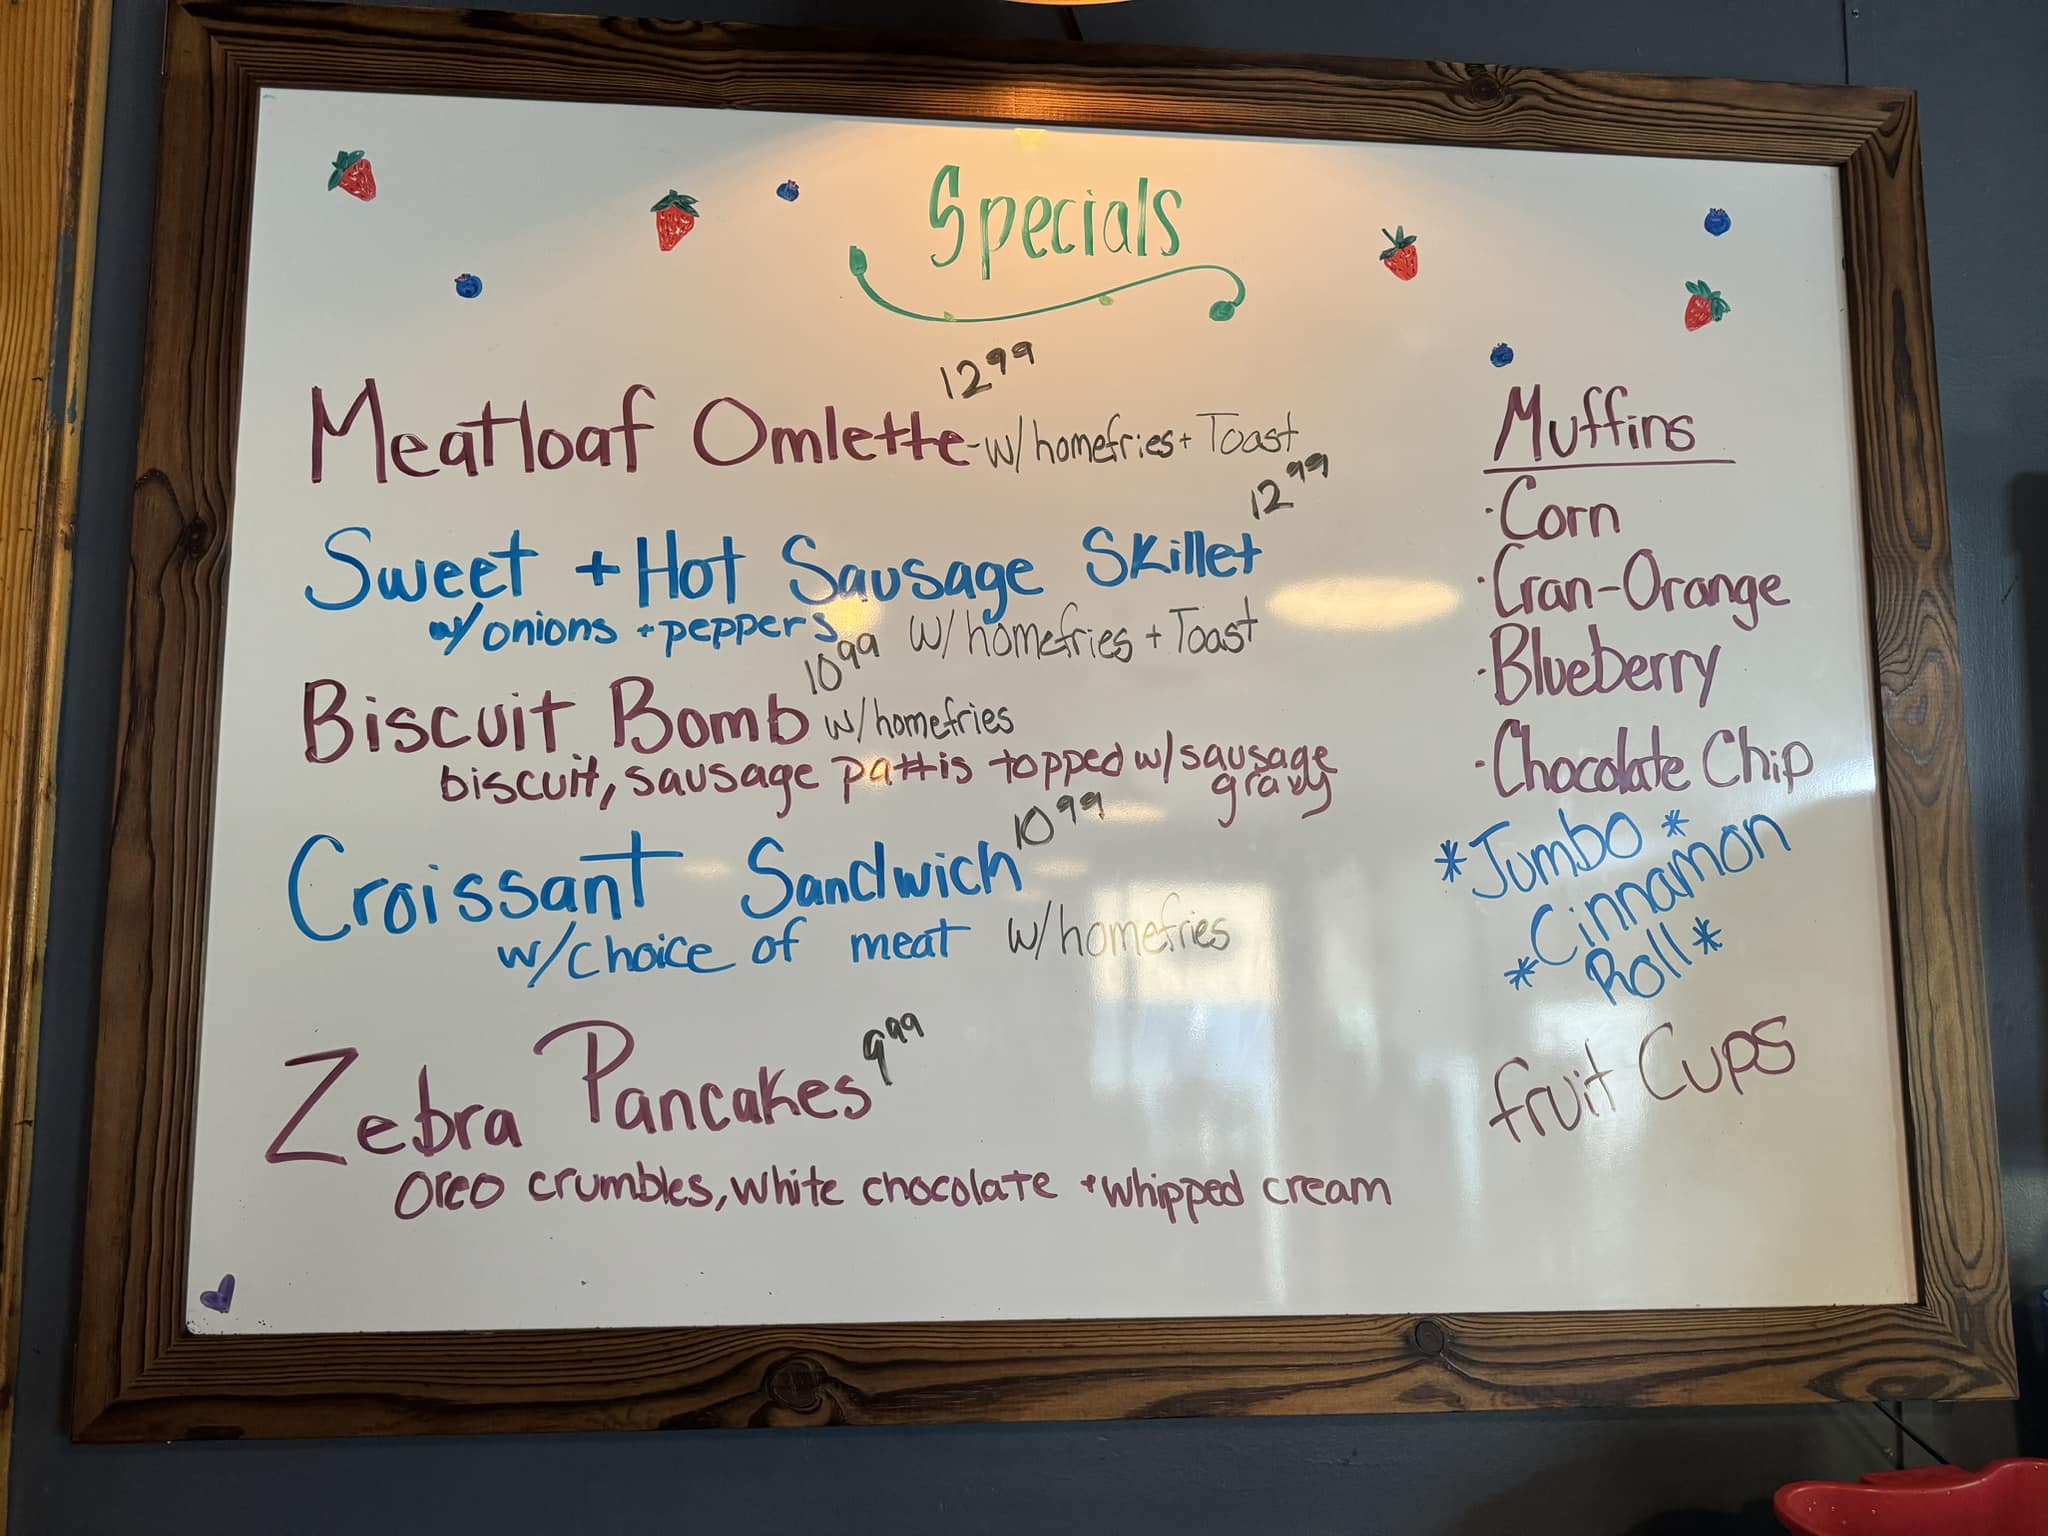 Specials
12.99
Meatloaf Omlette - w/ homefries + Toast
12.99
Sweet + Hot Sausage Skillet
w/ onions + peppers w/ homefries + Toast
10.99
Biscuit Bomb w/ homefries
biscuit, sausage pattis topped w/ sausage
gravy
10.99
Croissant Sandwich
w/ choice of meat w/ homefries
9.99
Zebra Pancakes
oreo crumbles, white chocolate + whipped cream
Muffins
· Corn
· Cran-Orange
· Blueberry
· Chocolate Chip
* Jumbo *
Cinnamon
* Roll *
fruit Cups